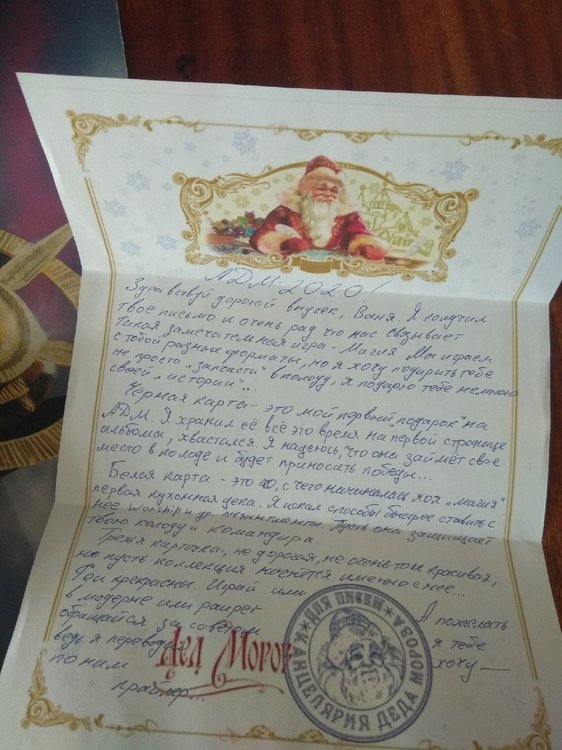 АДМ-2020!
Здравствуй дорогой внучек, Ваня. Я получил
твоё письмо и очень рад что нас связывает
такая замечательная игра - Магия. Мы играем
с тобой разные форматы, но я хочу подарить тебе
не просто "запчасти" в колоду, я подарю тебе немного
своей "истории"...
Чёрная карта - это мой первый "подарок" на
АДМ. Я хранил её всё это время на первой странице
альбома, хвастался. Я надеюсь, что она займёт своё
место в колоде и будет приносить победы...
Белая карта - это то, с чего начиналась моя "магия"
первая кухонная дека. Я искал способы быстрее ставить с
неё Worship и др. энчантменты. Пусть она защищает
твою колоду и командира.
Третья карточка, не дорогая, не очень-то и красивая,
но пусть коллекция начнётся именно с неё...
Феи прекрасны. Играй или
в модерне или
обращайся за советом
ведь я переводил
по ним
праймер...
А пожелать
я тебе
хочу
Дед Мороз
КАНЦЕЛЯРИЯ ДЕДА МОРОЗА
ДЛЯ ПИСЕМ